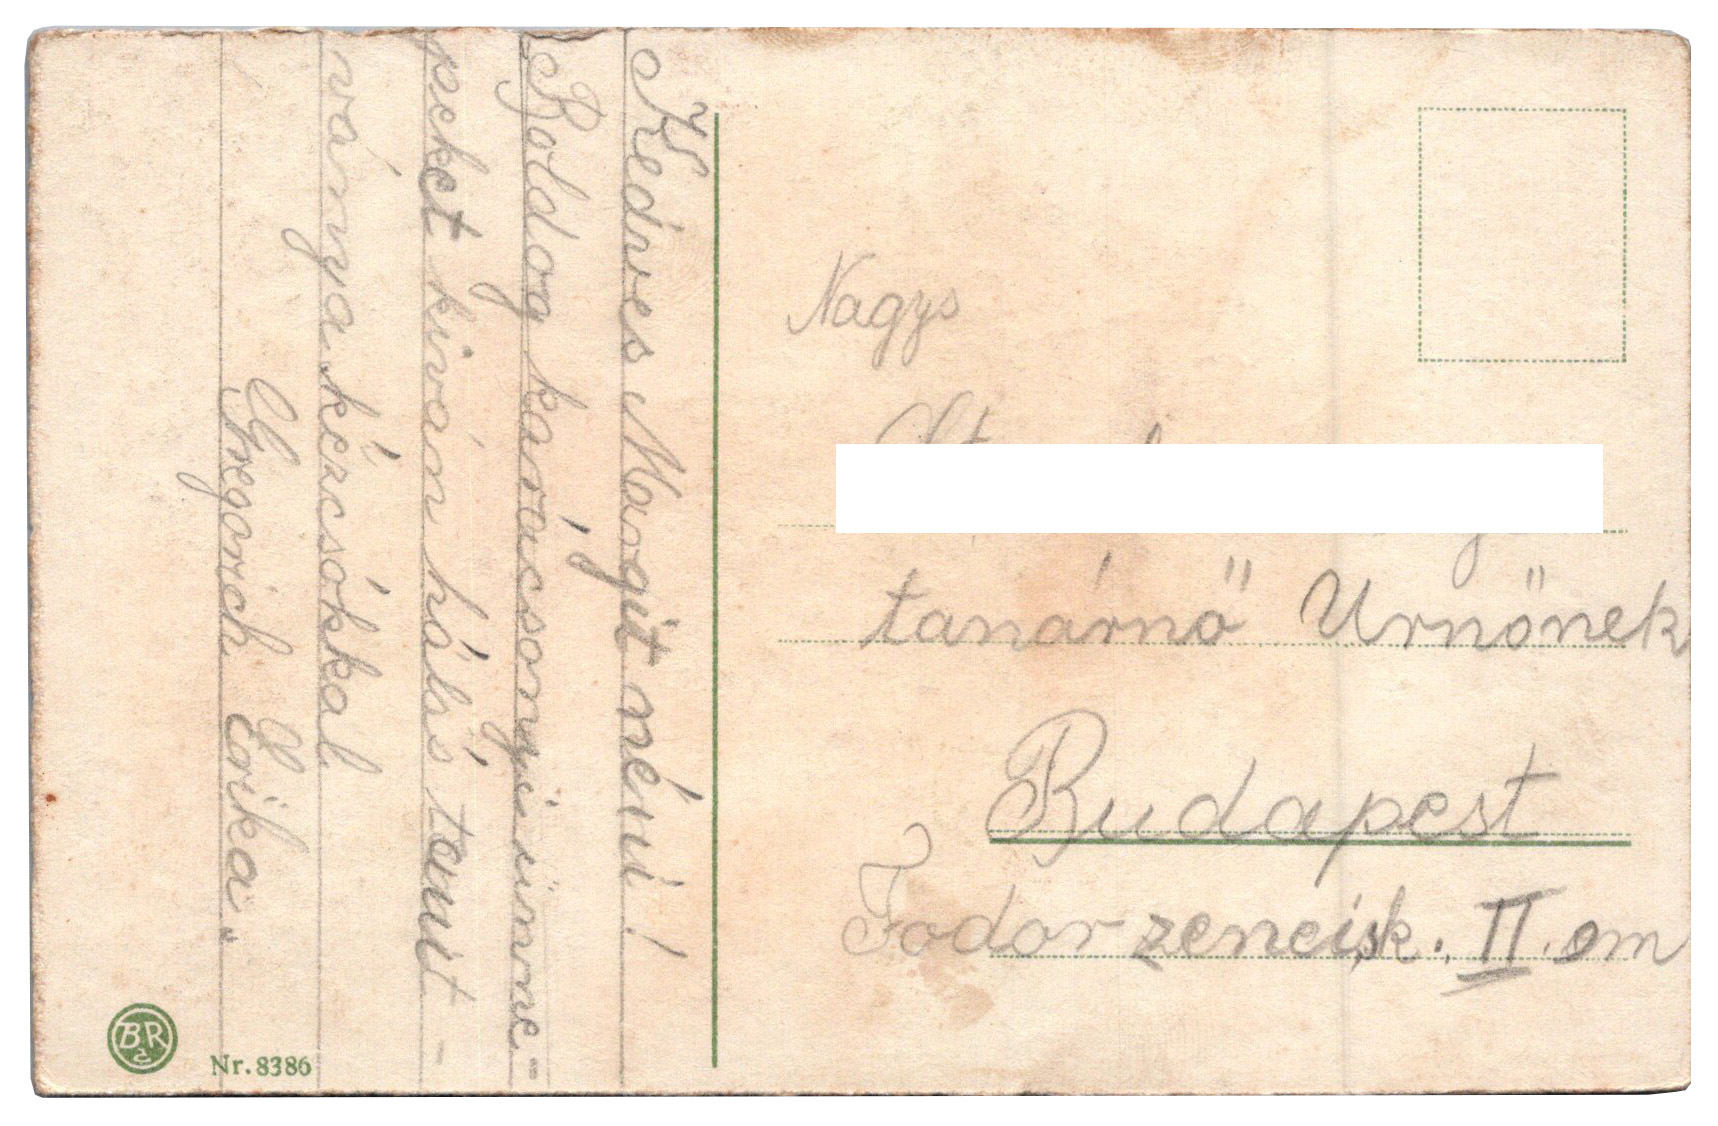 Kedves Margit néni!
Boldog karácsonyi ünne-
peket kíván hálás tanít-
ványa kézcsókkal
Gregorich Erika.
Nagys
tanárnő Urnőnek
Budapest
Fodor zeneisk. II. em
BR
Nr. 8386